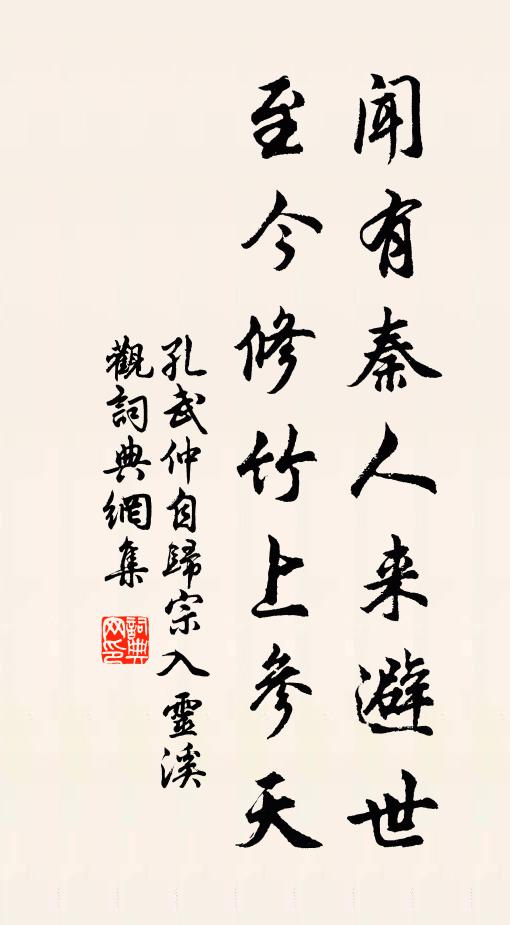 闻有秦人来避世
至今修竹上参天
孔武仲自歸宗入靈溪
觀詞典網集
詞典
网印